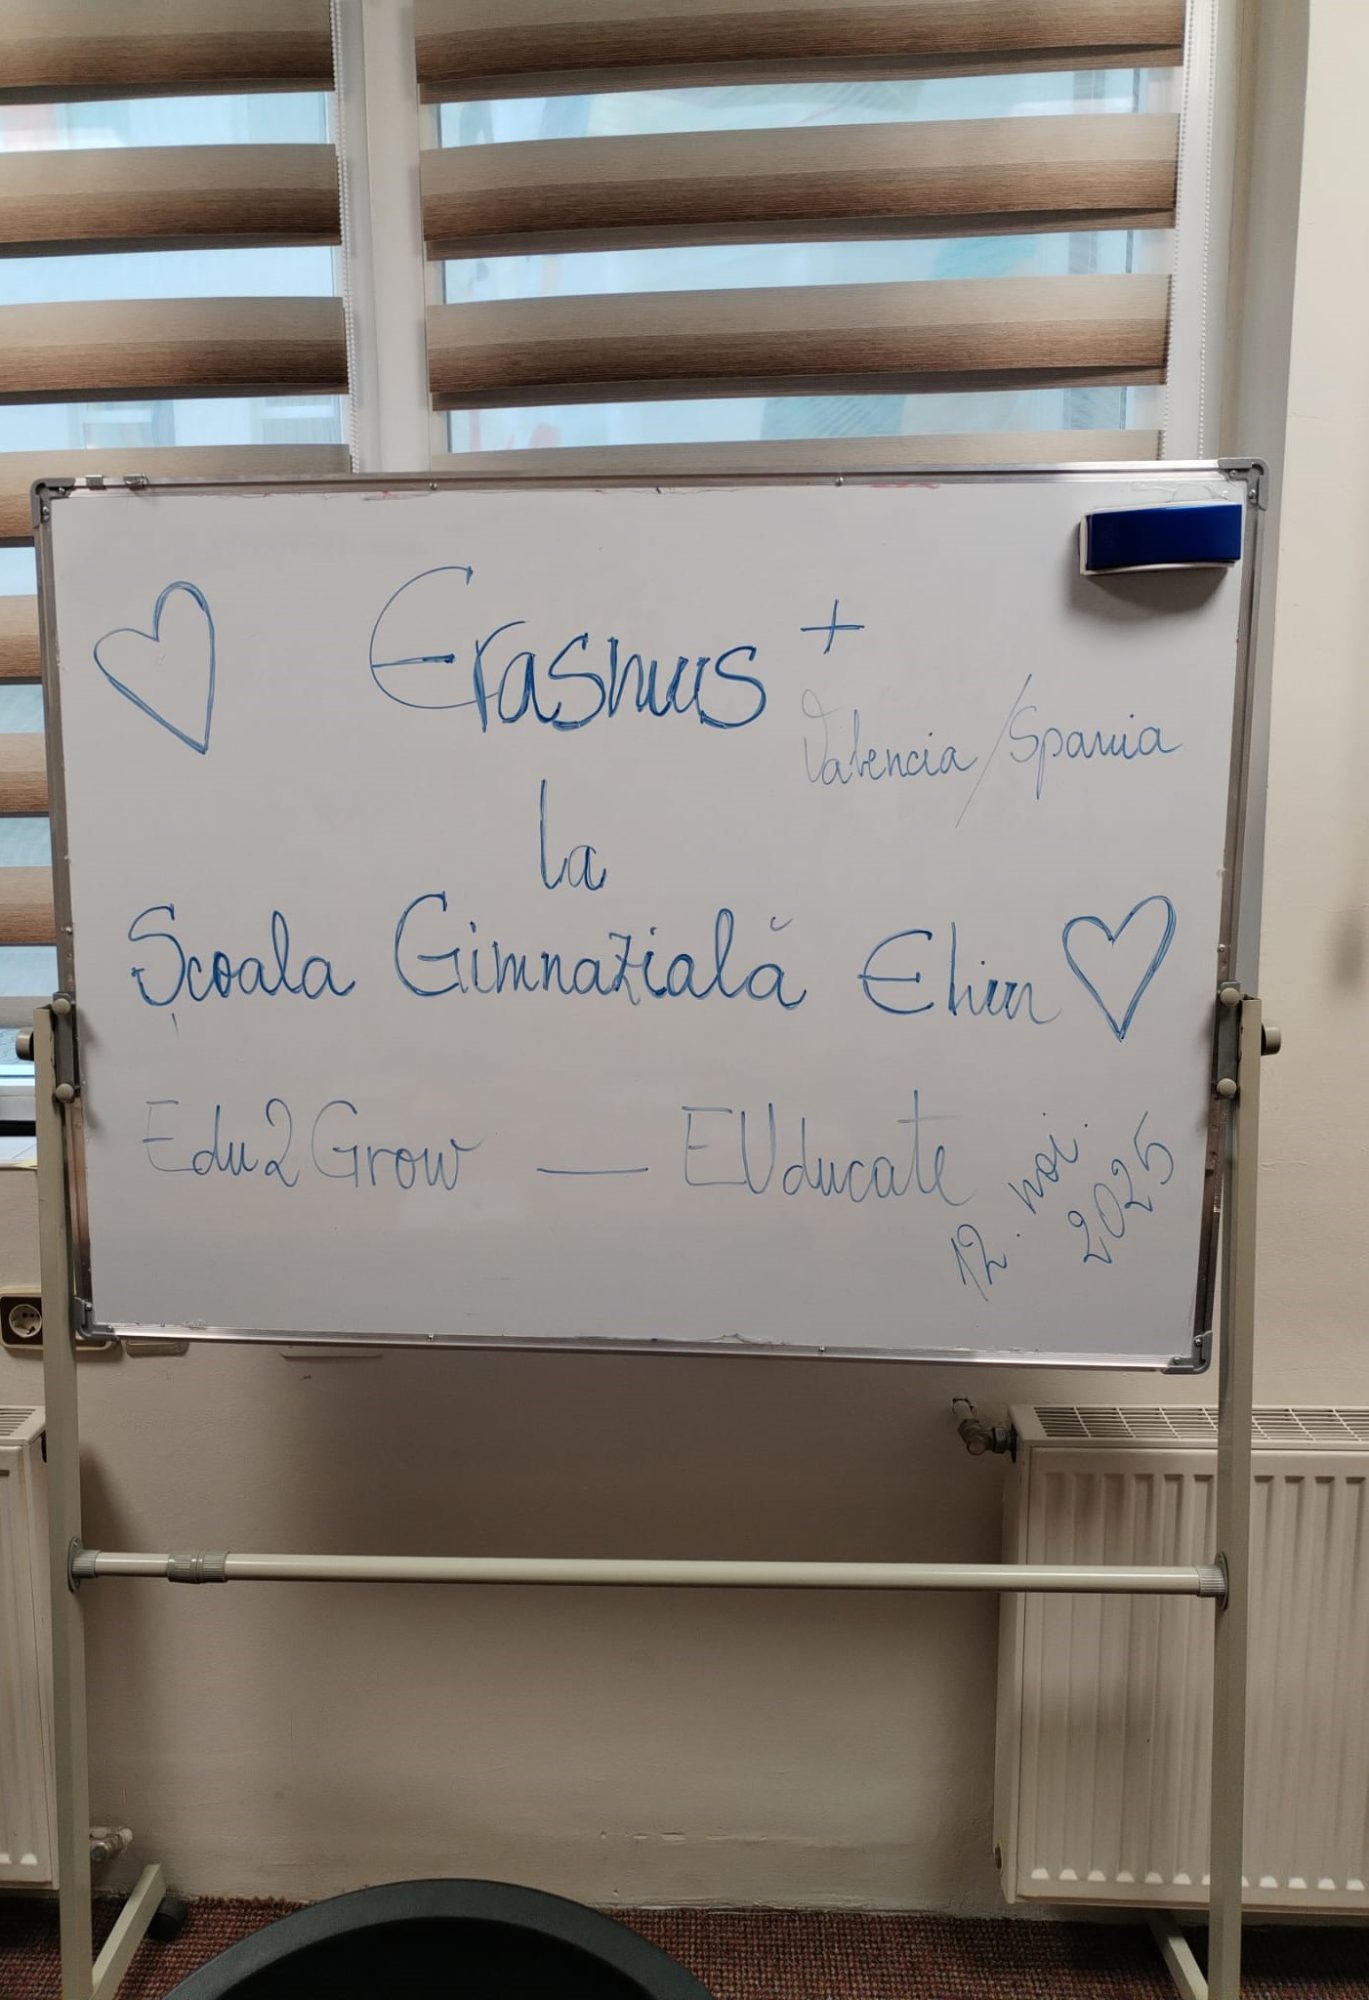 Erasmus +
Valencia/Spania
la
Școala Gimnazială Elim
Edu2Grow — EUducate
12. noi. 2025